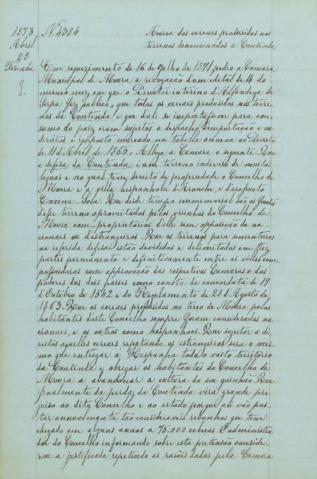 1873
Abril
23
Fazenda
N.º 4384
Acerca dos cereaes produzidos nos
terrenos denominados a Contenda
Em requerimento de 16 de Julho de 1871 pedio a Camara
Municipal de Moura a revogação d'um edital de 14 do
mesmo mez em que o Director interino d'Alfandega de
Serpa fez publico, que todos os cereaes produzidos nos terre-
nos da Contenda e que dali se importassem para con-
sumo do paiz eram sujeitos a despacho d'importação e ao
direitos e imposto indicado na tabella annexa ao Decreto
de 11 de Abril de 1865. Allega a Camara o seguinte. Que
a defesa da Contenda é um terreno indeviso de muitas
legoas e no qual tem direito de propriedade o Concelho de
Moura e a villa hespanhola d'Aroche, e
Que desde tempo immemorial são os fructos
desse terreno aproveitados pelos visinhos do Concelho de
Moura como proprietarios d'elle sem opposição de na-
cionaes ou d'estrangeiros. Que os terrenos para sementeiras
na referida defesa estão divididos e delimitados em tres
partes permanente e definitivamente entre as villas com-
possuidoras com approvação das respectivas Camaras e dos
poderes dos dois paizes como consta da concordata de 19
d'Outubro de 1542 e do Regulamento de 28 d'Agosto de
1803. Que os cereaes produzidos na terra de Moura pelos
habitantes deste Concelho sempre foram considerados na-
cionaes, e os outros como hespanhoes. Que sujeitar a di-
reitos aquelles cereaes reputando-os estrangeiros sera o mes-
mo que entregar a Hespanha todo o vasto territorio
da Contenda e obrigar os habitantes do Concelho de
Moura a abandonar a cultura do seu quinhão. Que
finalmente da perda da Contenda virá grande pre-
juizo ao dito Concelho e ao estado porque ali vão pas-
tar annualmente tão consideraveis rebanhos que tem
chegado em alguns annos a 75:000 cabeças. O administra-
dor do Concelho informando sobre esta pretensão conside-
rou-a justificada repetindo as rasões dadas pela Camara